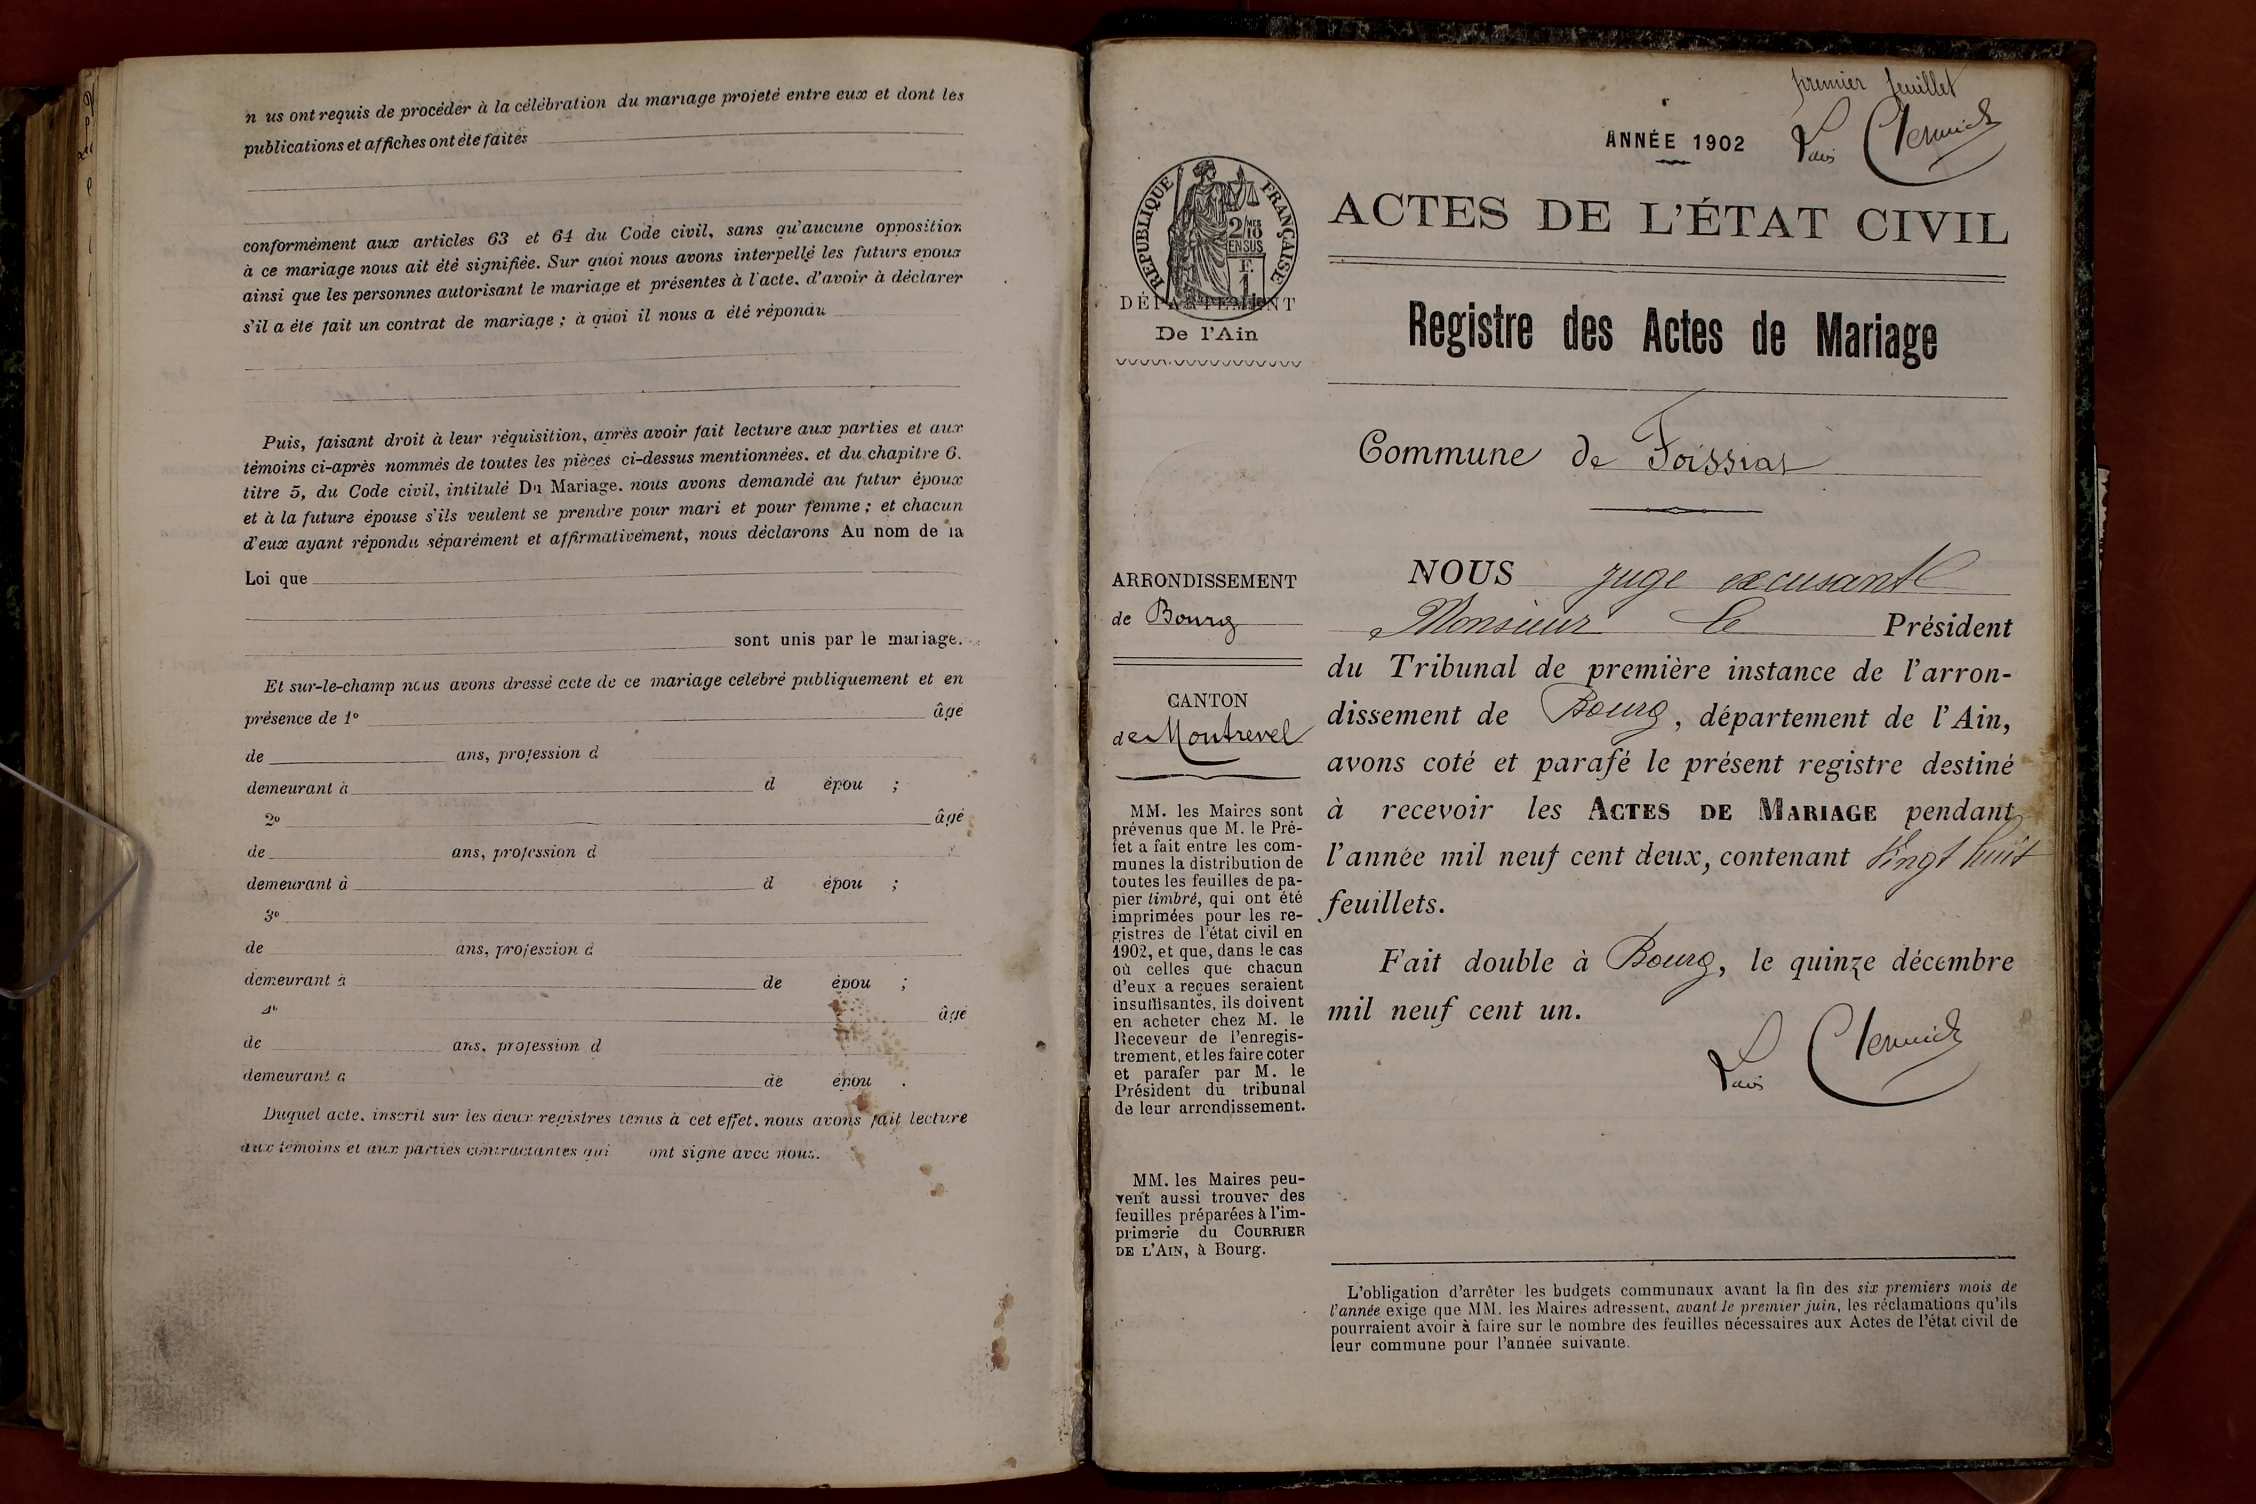 n us ont requis de procéder à la célébration du mariage projeté entre eux et dont les
publications et affiches ont été faites
conformément aux articles 63 et 64 du Code civil, sans qu'aucune opposition
à ce mariage nous ait été signifiée. Sur quoi nous avons interpellé les futurs epoux
ainsi que les personnes autorisant le mariage et présentes à l'acte, d'avoir à déclarer
s'il a été fait un contrat de mariage ; à quoi il nous a été répondu
Puis, faisant droit à leur réquisition, après avoir fait lecture aux parties et aux
témoins ci-après nommés de toutes les pièces ci-dessus mentionnées, et du chapitre 6.
titre 5, du Code civil, intitulé Du Mariage. nous avons demandé au futur époux
et à la future épouse s'ils veulent se prendre pour mari et pour femme ; et chacun
d'eux ayant répondu séparément et affirmativement, nous déclarons Au nom de la
Loi que
sont unis par le mariage.
Et sur-le-champ nous avons dressé acte de ce mariage célébré publiquement et en
présence de 1º âgé
de ans, profession d
demeurant à d épou ;
2º âgé
de ans, profession d
demeurant à d épou ;
3º
de ans, profession d
demeurant à de épou ;
4º âgé
de ans, profession d
demeurant à de épou .
Duquel acte, inscrit sur les deux registres tenus à cet effet, nous avons fait lecture
aux témoins et aux parties contractantes qui ont signé avec nous.
premier feuillet
ANNÉE 1902
RÉPUBLIQUE FRANÇAISE
2/10 MES
EN SUS
F.
1
ACTES DE L'ÉTAT CIVIL
DÉPARTEMENT
De l'Ain
Registre des Actes de Mariage
Commune de Foissiat
ARRONDISSEMENT
de Bourg
CANTON
de Montrevel
MM. les Maires sont
prévenus que M. le Pré-
fet a fait entre les com-
munes la distribution de
toutes les feuilles de pa-
pier timbré, qui ont été
imprimées pour les re-
gistres de l'état civil en
1902, et que, dans le cas
où celles que chacun
d'eux a reçues seraient
insuffisantes, ils doivent
en acheter chez M. le
Receveur de l'enregis-
trement, et les faire coter
et parafer par M. le
Président du tribunal
de leur arrondissement.
MM. les Maires peu-
vent aussi trouver des
feuilles préparées à l'im-
primerie du COURRIER
DE L'AIN, à Bourg.
NOUS juge excusant
Monsieur le Président
du Tribunal de première instance de l'arron-
dissement de Bourg, département de l'Ain,
avons coté et parafé le présent registre destiné
à recevoir les ACTES DE MARIAGE pendant
l'année mil neuf cent deux, contenant Vingt huit
feuillets.
Fait double à Bourg, le quinze décembre
mil neuf cent un.
L'obligation d'arrêter les budgets communaux avant la fin des six premiers mois de
l'année exige que MM. les Maires adressent, avant le premier juin, les réclamations qu'ils
pourraient avoir à faire sur le nombre des feuilles nécessaires aux Actes de l'état civil de
leur commune pour l'année suivante.